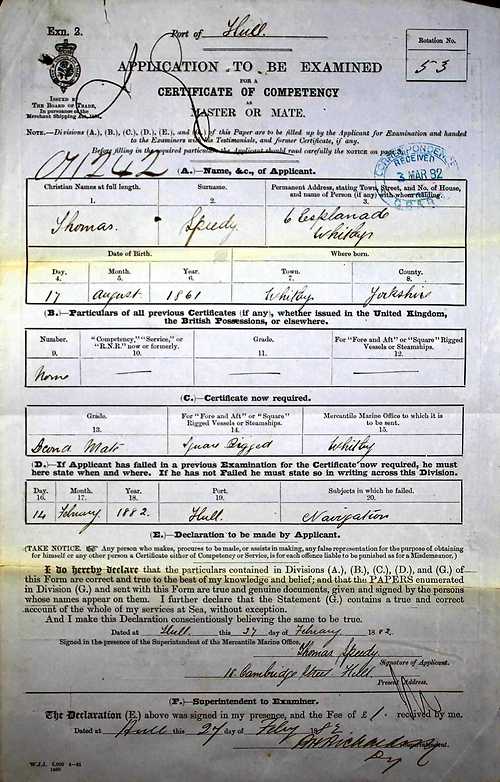 Exn. 2.
Port of Hull.
Rotation No.
53
APPLICATION TO BE EXAMINED
FOR A
CERTIFICATE OF COMPETENCY
AS
MASTER OR MATE.
ISSUED BY
THE BOARD OF TRADE,
In pursuance of the
Merchant Shipping Act,
NOTE.—Divisions (A.), (B.), (C.), (D.), (E.), and (G.) of this Paper are to be filled up by the Applicant for Examination and handed
to the Examiners with his Testimonials, and former Certificate, if any.
Before filling in the required particulars the Applicant should read carefully the NOTICE on page
CORRESPONDENCE
RECEIVED
3 MAR 82
01242
(A.)—Name, &c., of Applicant.
Christian Names at full length.
1.
Surname.
2.
Permanent Address, stating Town, Street, and No. of House,
and name of Person (if any) with whom residing.
3.
Thomas.
Speedy
6 Esplanade
Whitby
Date of Birth.
Where born.
Day.
4.
Month.
5.
Year.
6.
Town.
7.
County.
8.
17
August
1861
Whitby
Yorkshire
(B.)—Particulars of all previous Certificates (if any), whether issued in the United Kingdom,
the British Possessions, or elsewhere.
Number.
9.
"Competency," "Service," or
"R.N.R." now or formerly.
10.
Grade.
11.
For "Fore and Aft" or "Square" Rigged
Vessels or Steamships.
12.
None
(C.)—Certificate now required.
Grade.
13.
For "Fore and Aft" or "Square"
Rigged Vessels or Steamships.
14.
Mercantile Marine Office to which it is
to be sent.
15.
Second Mate
Square Rigged
Whitby
(D.)—If Applicant has failed in a previous Examination for the Certificate now required, he must
here state when and where. If he has not Failed he must state so in writing across this Division.
Day.
16.
Month.
17.
Year.
18.
Port.
19.
Subjects in which he failed.
20.
14
February
1882.
Hull.
Navigation
(E.)—Declaration to be made by Applicant.
(TAKE NOTICE. Any person who makes, procures to be made, or assists in making, any false representation for the purpose of obtaining
for himself or any other person a Certificate either of Competency or Service, is for each offence liable to be punished as for a Misdemeanor.)
I do hereby declare that the particulars contained in Divisions (A.), (B.), (C.), (D.), and (G.) of
this Form are correct and true to the best of my knowledge and belief; and that the PAPERS enumerated
in Division (G.) and sent with this Form are true and genuine documents, given and signed by the persons
whose names appear on them. I further declare that the Statement (G.) contains a true and correct
account of the whole of my services at Sea, without exception.
And I make this Declaration conscientiously believing the same to be true.
Dated at Hull. this 27 day of February 1882.
Signed in the presence of the Superintendent of the Mercantile Marine Office.
Thomas Speedy
Signature of Applicant.
18 Cambridge Street Hull
Present Address.
(F.)—Superintendent to Examiner.
The Declaration (E.) above was signed in my presence, and the Fee of £1. received by me.
Dated at Hull this 27 day of Feby 1882
Richardson
Superintendent.
Dy
W.J.J. 5,000 4—81